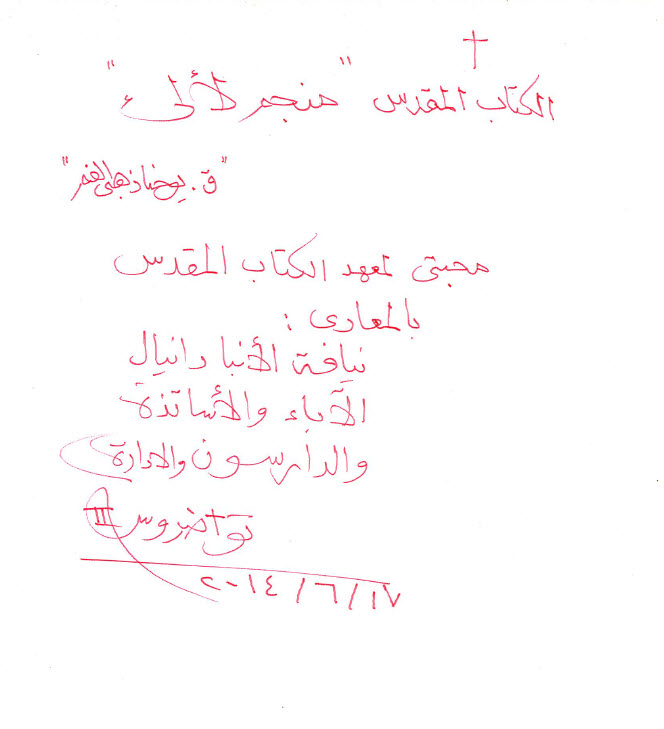 الكتاب المقدس "منجم لآلىء"
"ق. يوحنا ذهبى الفم"
محبتى لمعهد الكتاب المقدس
بالمعادى :
نيافة الأنبا دانيال
الآباء والأساتذة
والدارسون والادارة
تواضروس II
٢٠١٤/٦/١٧